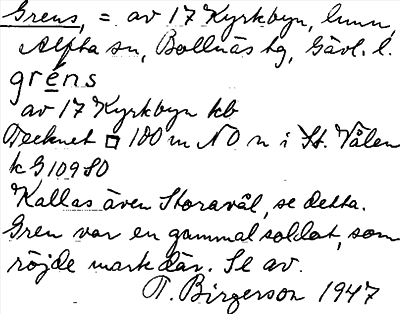 Grens, = av 17 Kyrkbyn,
Alfta sn, Bollnäs tg, Gävl. l.
gréns
av 17 Kyrkbyn kb
Tecknet □ 100 m NO n i St. Vålen
k G109 SO
Kallas även Storavål, se detta.
Gren var en gammal soldat, som
röjde mark där. Se av.
T. Birgerson 1947